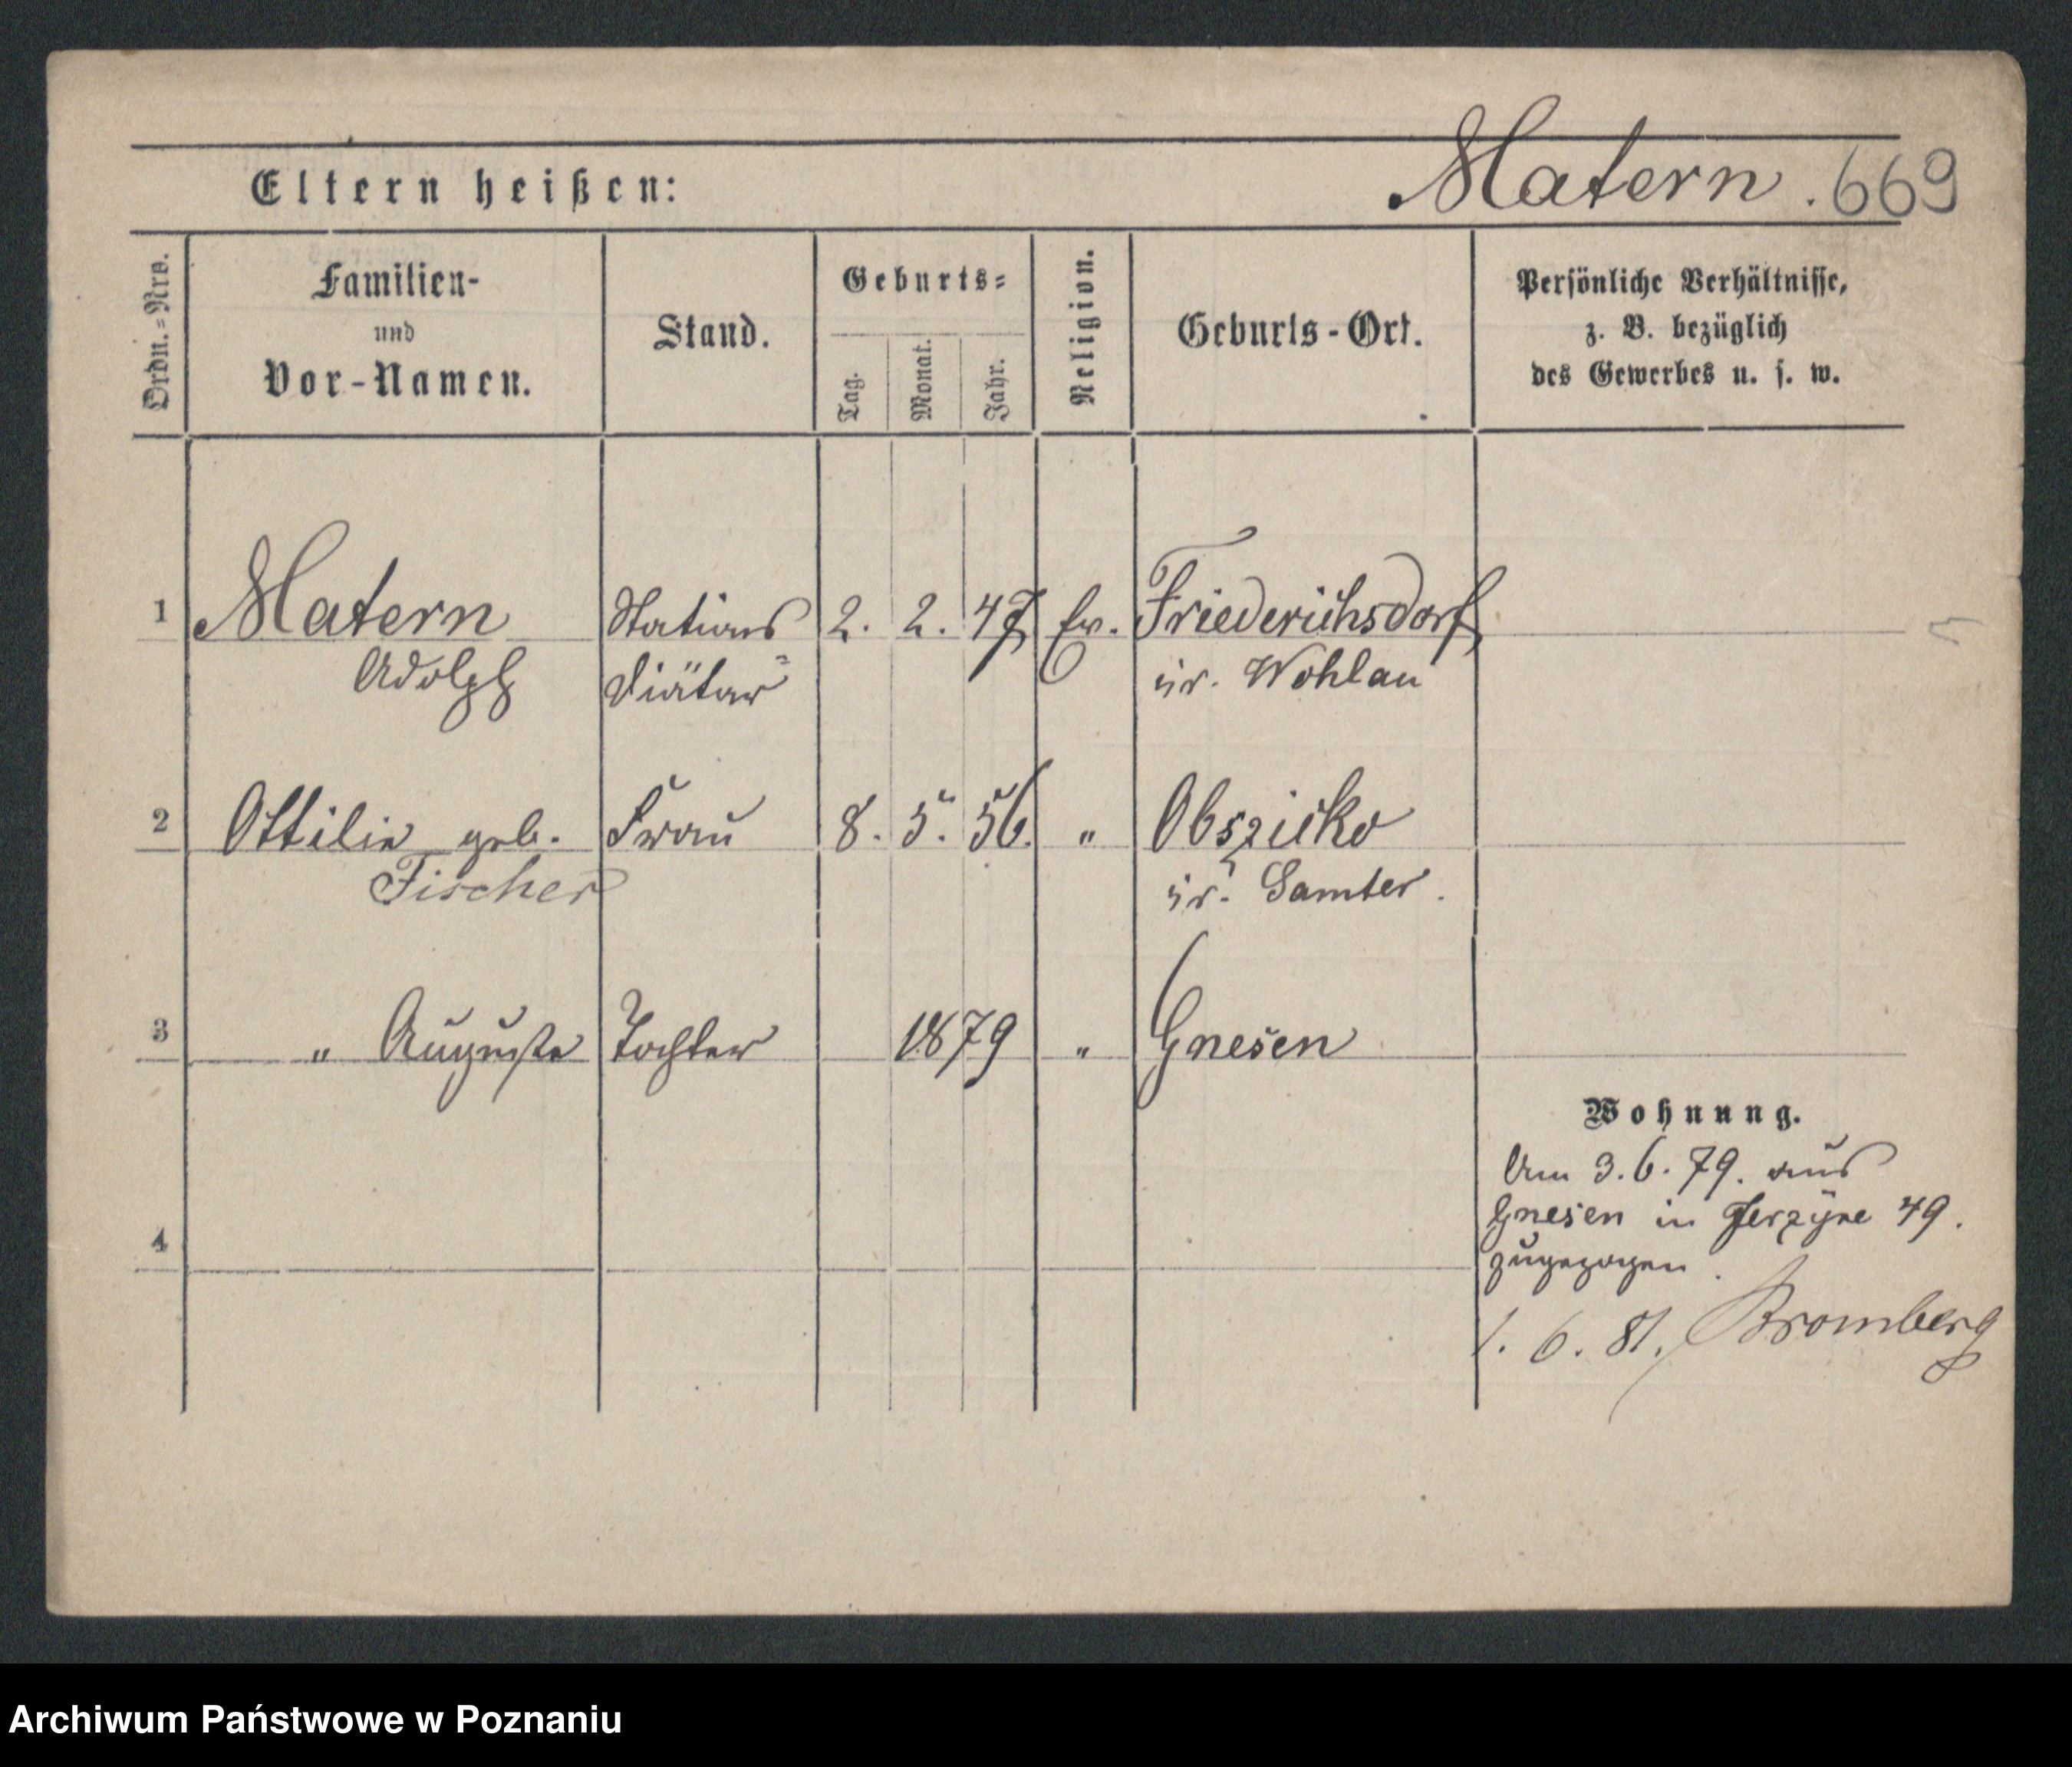 Eltern heißen: Matern. 669
Ordn.=Nro.
Familien-
und
Vor-Namen.
Stand.
Geburts=
Tag.
Monat.
Jahr.
Religion.
Geburts-Ort.
Persönliche Verhältnisse,
z. B. bezüglich
des Gewerbes u. s. w.
1 Matern Stations 2. 2. 47 Ev. Friederichsdorf
Adolph Diätar Kr. Wohlau
2 Ottilie geb. Frau 8. 5. 56. " Obszicko
Fischer Kr. Samter.
3 " Auguste Tochter 1879 " Gnesen
4
Wohnung.
Am 3. 6. 79. aus
Gnesen in Jerzyce 49.
zugezogen.
1. 6. 81. Bromberg
Archiwum Państwowe w Poznaniu